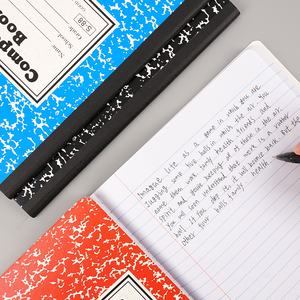 Composition
Book
S-88
Grade
School
Imagine life as a game in which you are
juggling some five balls in the air. You
name them work, family, health, friends and
spirit and you're keeping all of these in the air.
You will soon understand that work is a rubber
ball. If you drop it, it will bounce back. But the
other four balls family health